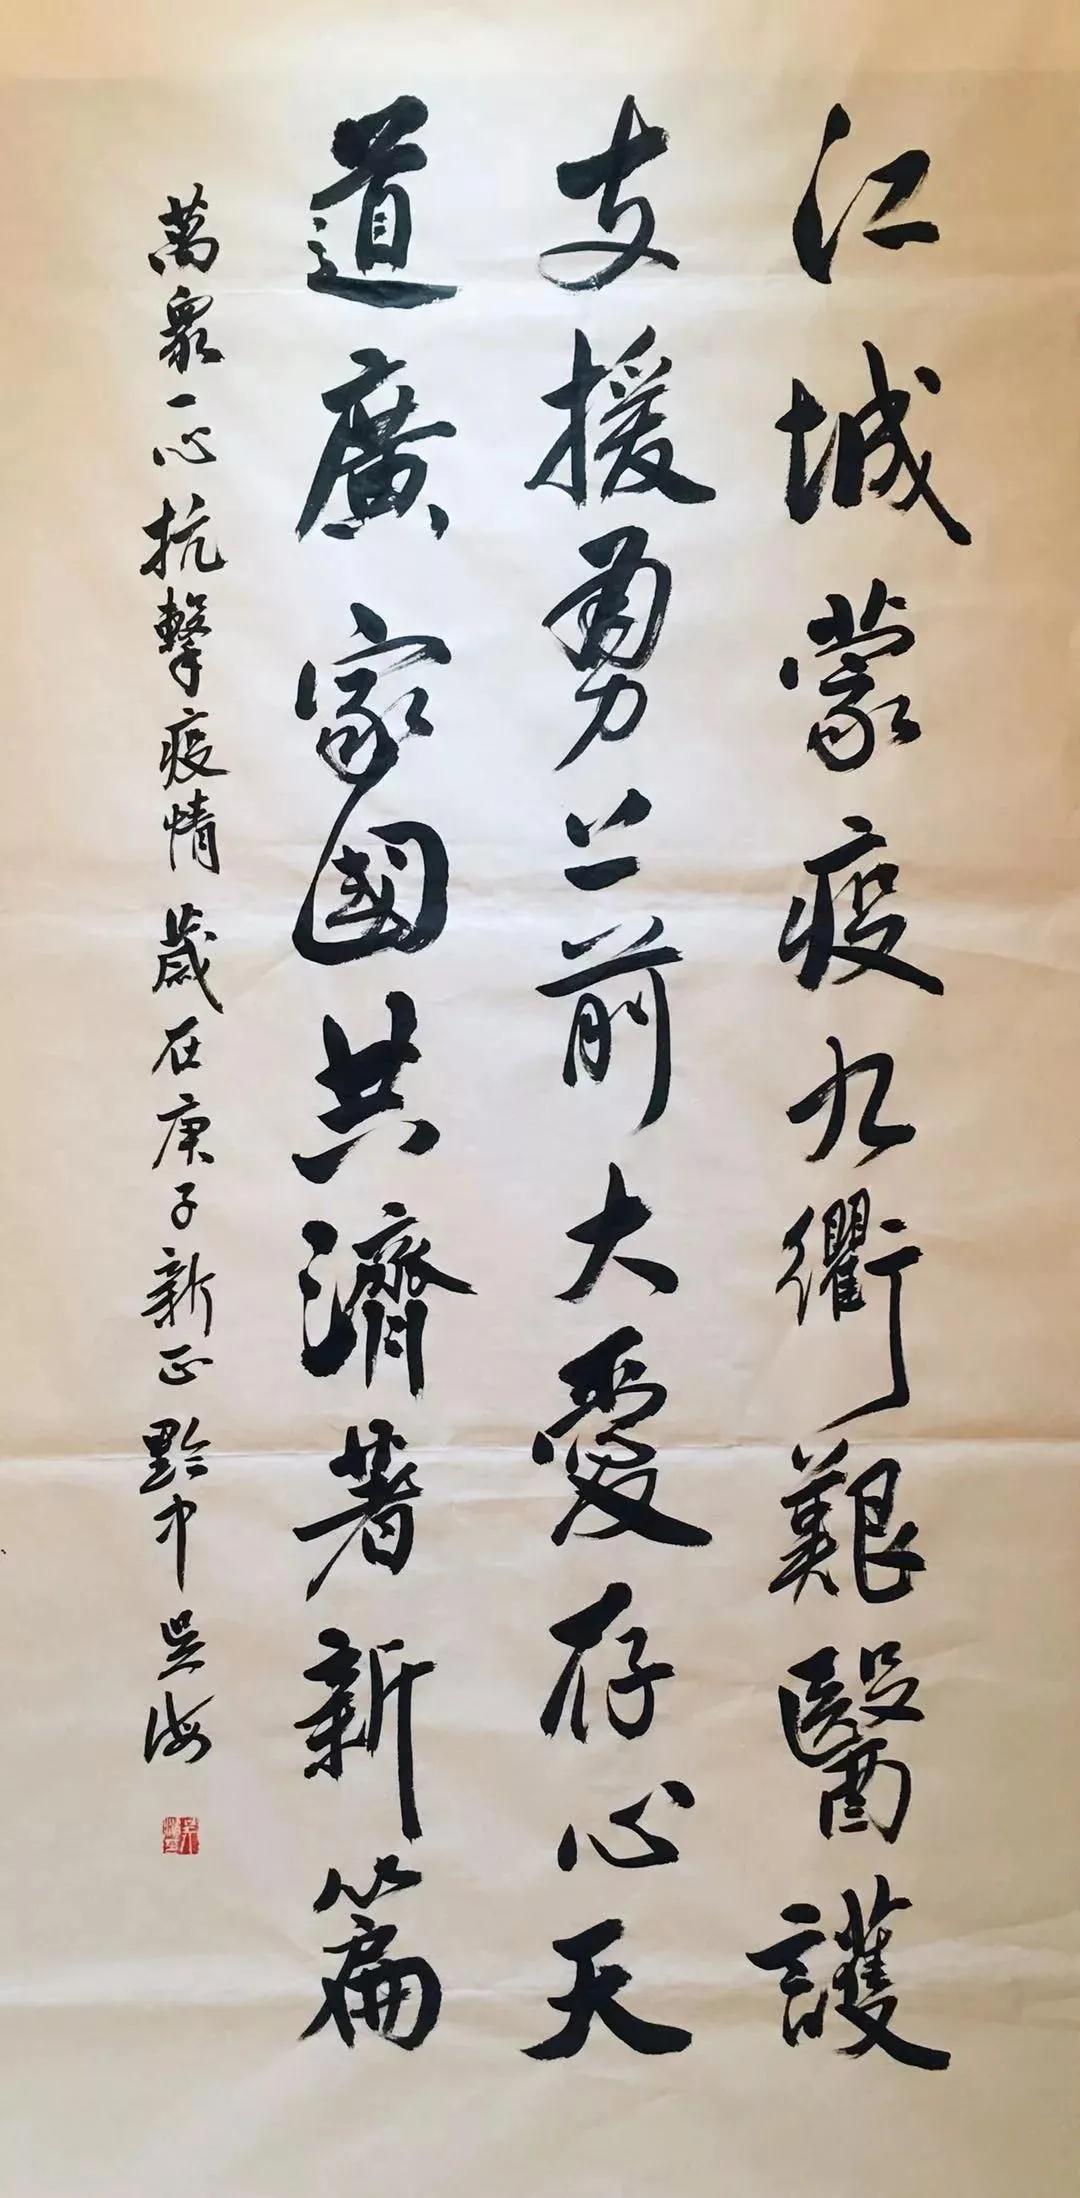 江城蒙疫九衢艱醫護
支援勇上前大愛存心天
道廣家國共濟著新篇
萬眾一心抗擊疫情歲在庚子新正黔中吳海